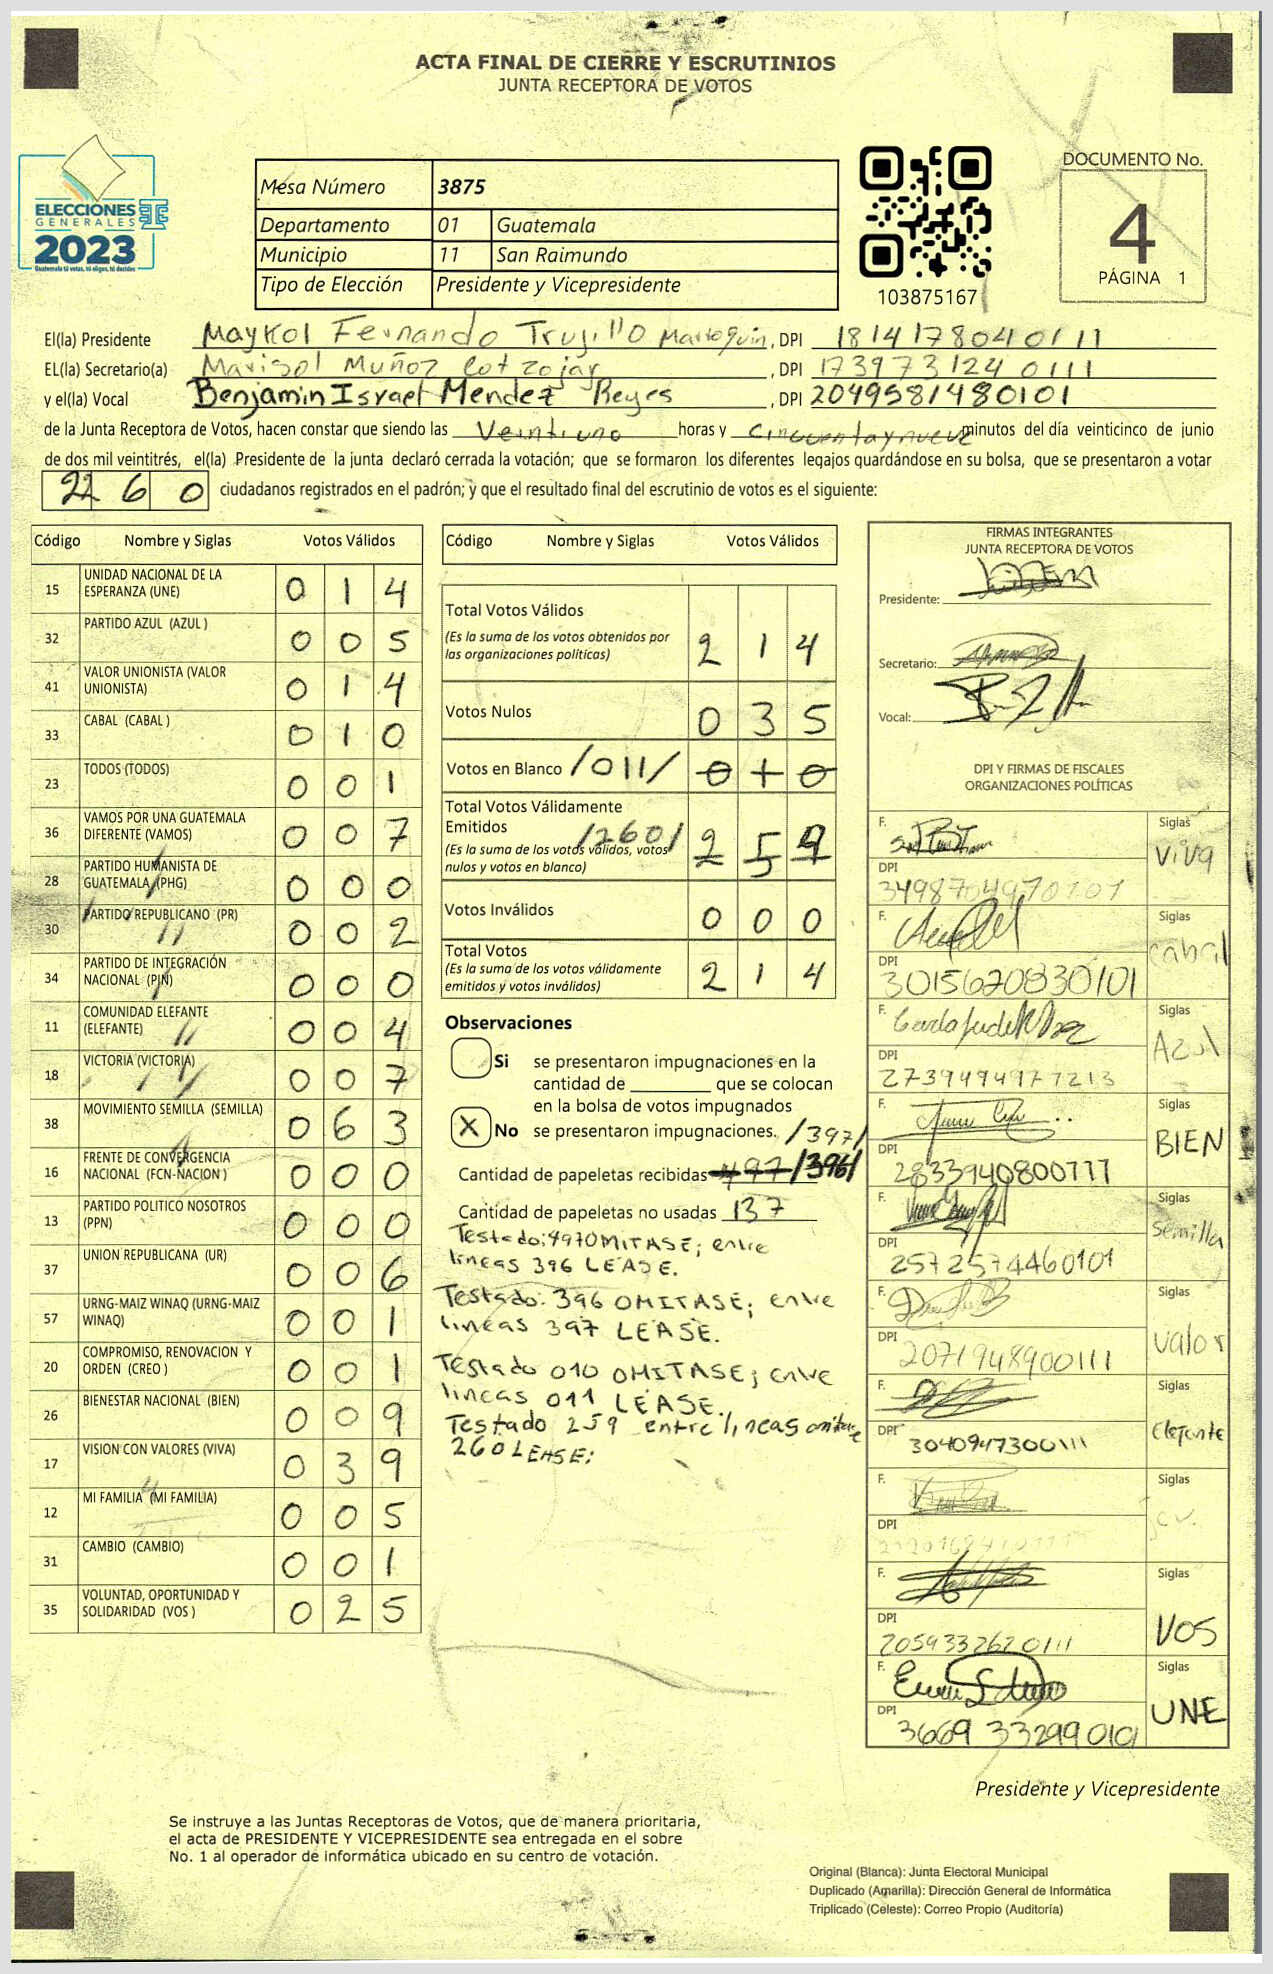 ACTA FINAL DE CIERRE Y ESCRUTINIOS
JUNTA RECEPTORA DE VOTOS
ELECCIONES
GENERALES
2023
Guatemala tú votas, tú eliges, tú decides
Mesa Número 3875
Departamento 01 Guatemala
Municipio 11 San Raimundo
Tipo de Elección Presidente y Vicepresidente
103875167
DOCUMENTO No.
4
PÁGINA 1
El(la) Presidente Maykol Fernando Trujillo Marroquin, DPI 1814178040111
EL(la) Secretario(a) Marisol Muñoz Cotzojay, DPI 1739731240111
y el(la) Vocal Benjamin Israel Mendez Reyes, DPI 2049581480101
de la Junta Receptora de Votos, hacen constar que siendo las Veintiuno horas y cincuentaynueve minutos del día veinticinco de junio
de dos mil veintitrés, el(la) Presidente de la junta declaró cerrada la votación; que se formaron los diferentes legajos guardándose en su bolsa, que se presentaron a votar
2 6 0 ciudadanos registrados en el padrón; y que el resultado final del escrutinio de votos es el siguiente:
Código Nombre y Siglas Votos Válidos
15 UNIDAD NACIONAL DE LA ESPERANZA (UNE) 0 1 4
32 PARTIDO AZUL (AZUL ) 0 0 5
41 VALOR UNIONISTA (VALOR UNIONISTA) 0 1 4
33 CABAL (CABAL ) 0 1 0
23 TODOS (TODOS) 0 0 1
36 VAMOS POR UNA GUATEMALA DIFERENTE (VAMOS) 0 0 7
28 PARTIDO HUMANISTA DE GUATEMALA (PHG) 0 0 0
30 PARTIDO REPUBLICANO (PR) 0 0 2
34 PARTIDO DE INTEGRACIÓN NACIONAL (PIN) 0 0 0
11 COMUNIDAD ELEFANTE (ELEFANTE) 0 0 4
18 VICTORIA (VICTORIA) 0 0 7
38 MOVIMIENTO SEMILLA (SEMILLA) 0 6 3
16 FRENTE DE CONVERGENCIA NACIONAL (FCN-NACION ) 0 0 0
13 PARTIDO POLITICO NOSOTROS (PPN) 0 0 0
37 UNION REPUBLICANA (UR) 0 0 6
57 URNG-MAIZ WINAQ (URNG-MAIZ WINAQ) 0 0 1
20 COMPROMISO, RENOVACION Y ORDEN (CREO ) 0 0 1
26 BIENESTAR NACIONAL (BIEN) 0 0 9
17 VISION CON VALORES (VIVA) 0 3 9
12 MI FAMILIA (MI FAMILIA) 0 0 5
31 CAMBIO (CAMBIO) 0 0 1
35 VOLUNTAD, OPORTUNIDAD Y SOLIDARIDAD (VOS ) 0 2 5
Código Nombre y Siglas Votos Válidos
Total Votos Válidos 2 1 4
(Es la suma de los votos obtenidos por
las organizaciones políticas)
Votos Nulos 0 3 5
Votos en Blanco /011/ 0 1 0
Total Votos Válidamente
Emitidos /260/ 2 5 9
(Es la suma de los votos válidos, votos
nulos y votos en blanco)
Votos Inválidos 0 0 0
Total Votos 2 1 4
(Es la suma de los votos válidamente
emitidos y votos inválidos)
Observaciones
Si se presentaron impugnaciones en la
cantidad de ________ que se colocan
en la bolsa de votos impugnados
X No se presentaron impugnaciones. /397/
Cantidad de papeletas recibidas 497 /396/
Cantidad de papeletas no usadas 137
Testado: 497 OMITASE; entre
lineas 396 LEASE.
Testado: 396 OMITASE; entre
lineas 397 LEASE.
Testado 010 OMITASE; entre
lineas 011 LEASE.
Testado 259 entre lineas omitase
260 LEASE:
FIRMAS INTEGRANTES
JUNTA RECEPTORA DE VOTOS
Presidente:
Secretario:
Vocal:
DPI Y FIRMAS DE FISCALES
ORGANIZACIONES POLÍTICAS
F. Siglas
viva
DPI
3498704970101
F. Siglas
cabal
DPI
3015620830101
F. Siglas
Azul
DPI
2739494977213
F. Siglas
BIEN
DPI
2833940800777
F. Siglas
semilla
DPI
2572574460101
F. Siglas
valor
DPI
2071948900111
F. Siglas
Elefante
DPI
3040947300111
F. Siglas
DPI
F. Siglas
VOS
DPI
2059332620111
F. Siglas
UNE
DPI
3669 33299 0101
Presidente y Vicepresidente
Se instruye a las Juntas Receptoras de Votos, que de manera prioritaria,
el acta de PRESIDENTE Y VICEPRESIDENTE sea entregada en el sobre
No. 1 al operador de informática ubicado en su centro de votación.
Original (Blanca): Junta Electoral Municipal
Duplicado (Amarilla): Dirección General de Informática
Triplicado (Celeste): Correo Propio (Auditoría)